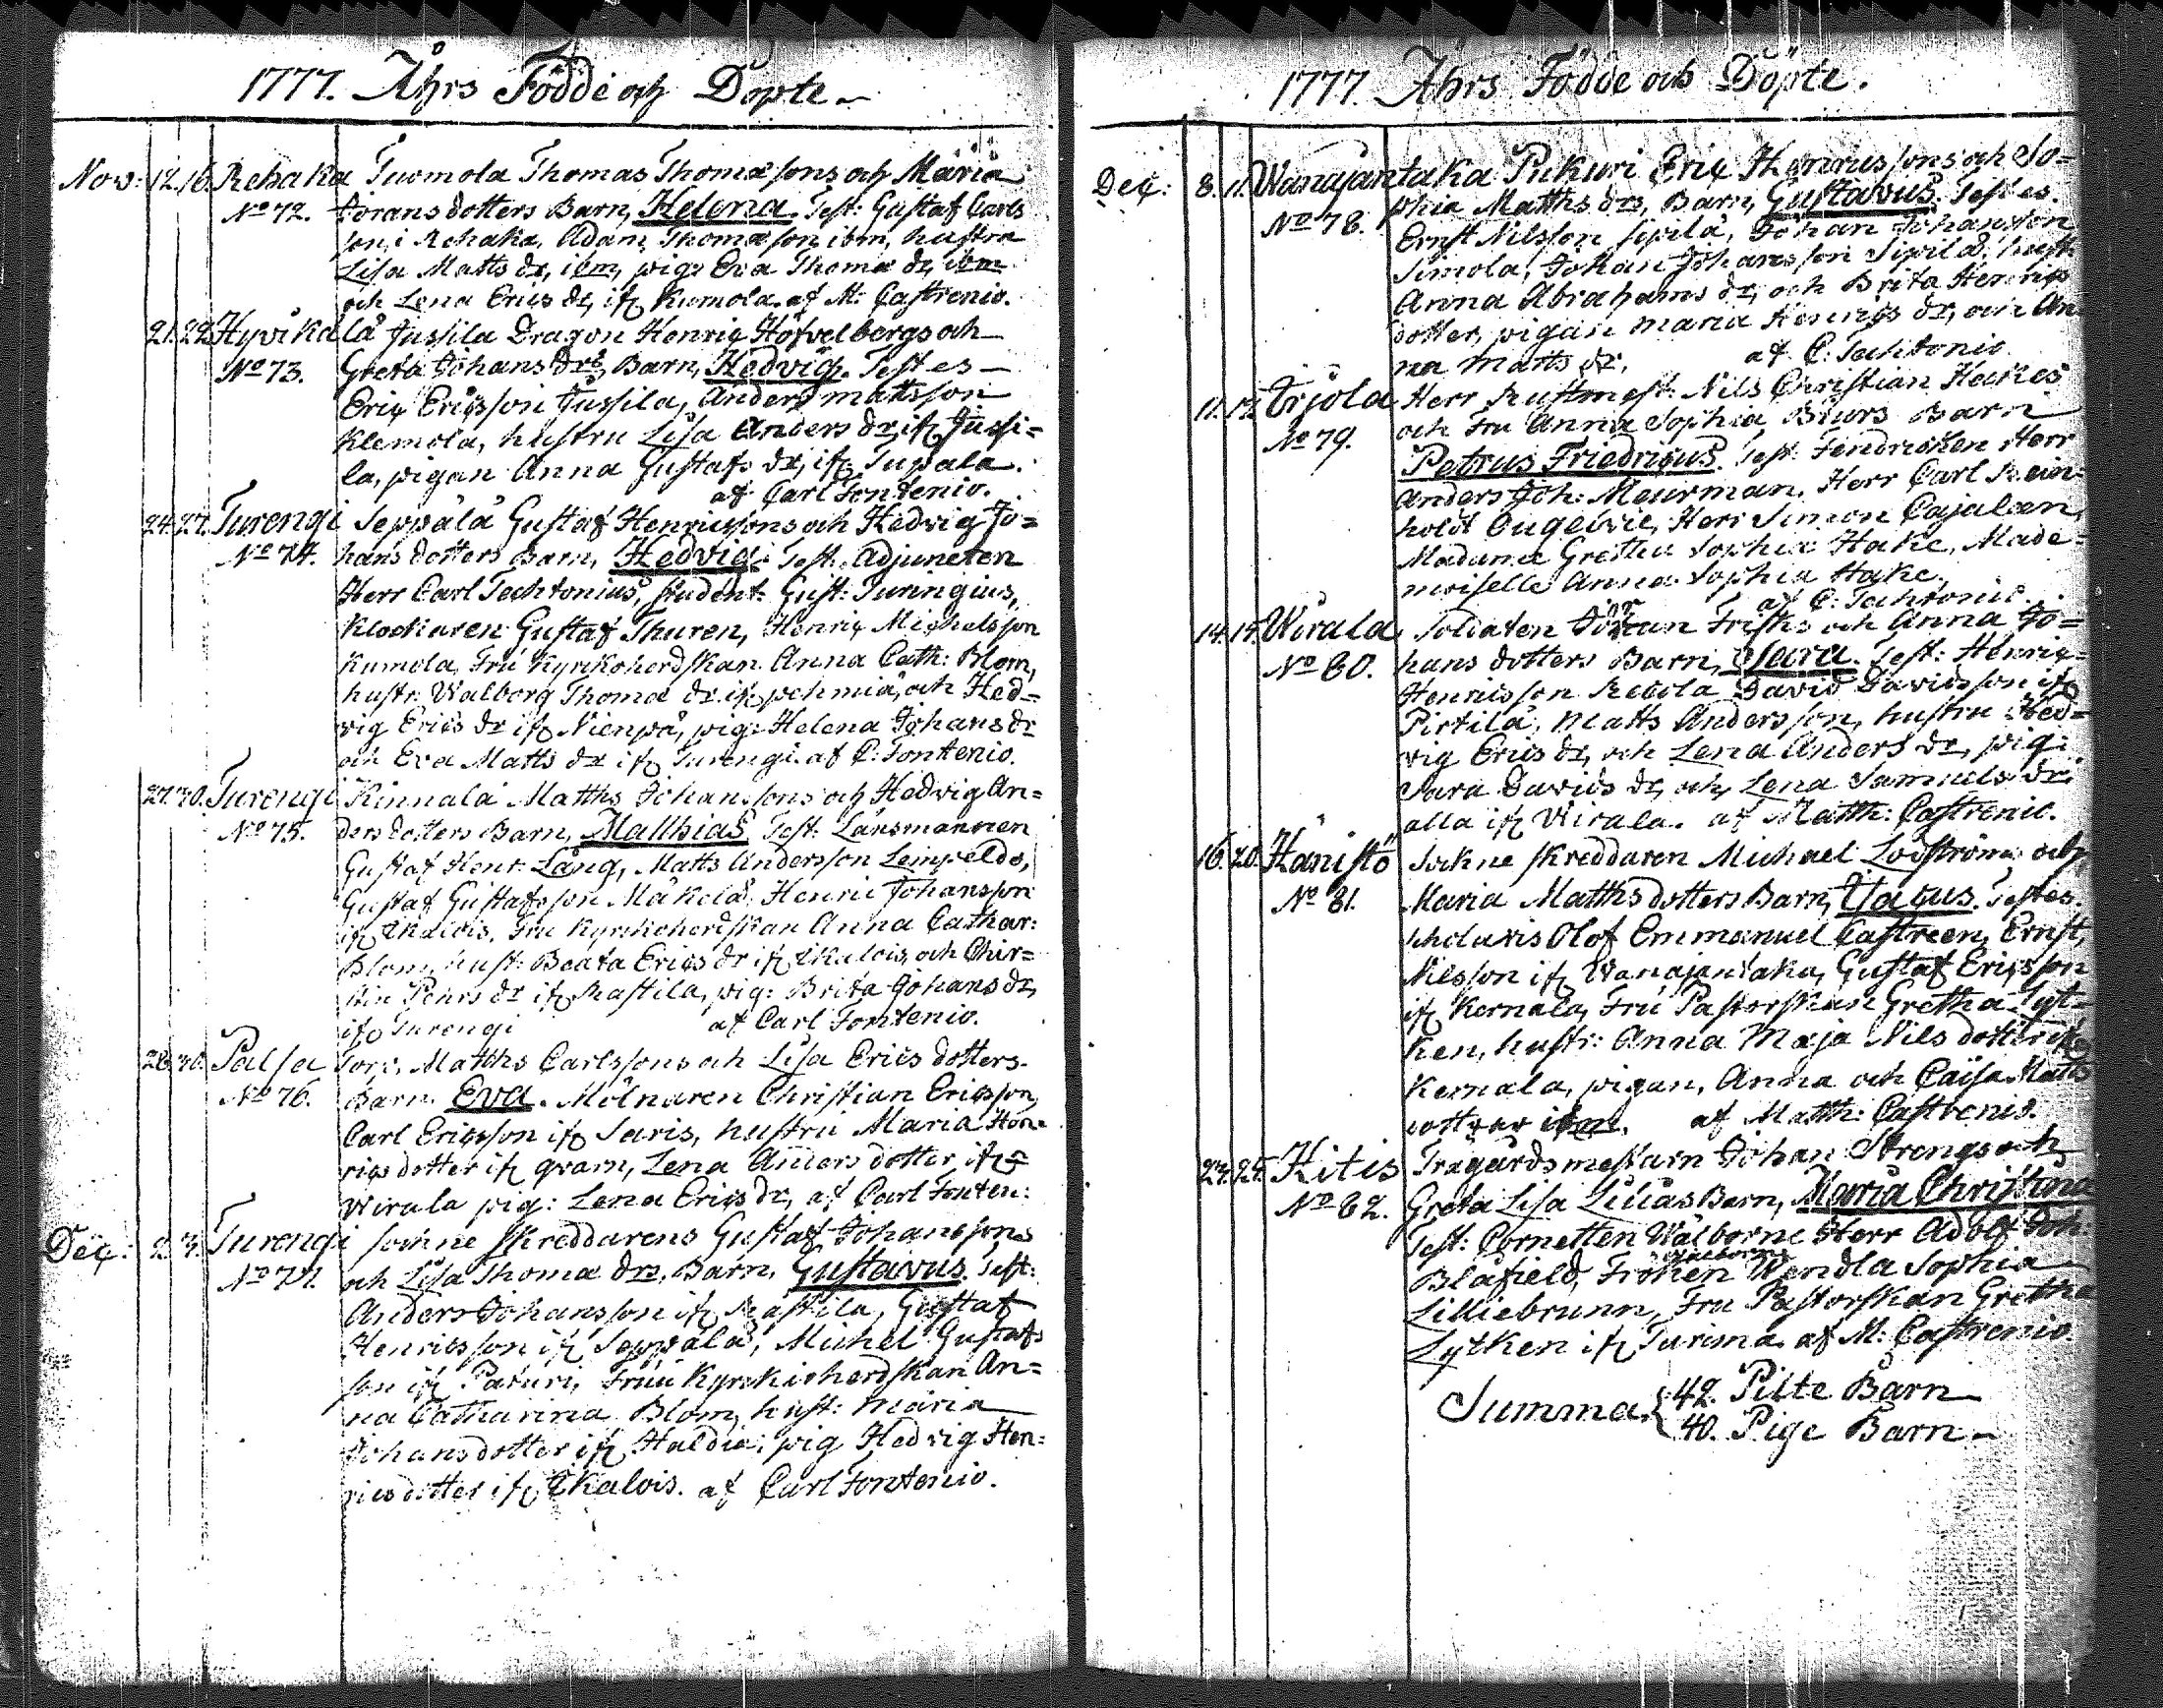 1777. Åhrs Födde och Döpte
Nov: 12. 16. Rehaka Tuomola Thomas Thomæsons och Maria
No 72. Joransdotters Barn, Helena. Test: Gustaf Carls
son i Rehaka, Adam Thomæson ibm, hustru
Lisa Matts dr, ibm, pig: Eva Thomæ dr, ibm
och Lena Erics dr, ifr Kumola. af M: Castrenio.
21. 22. Hyvikälä Jussila Dragon Henric Höfvelbergs och
No 73. Greta Johans drs, Barn, Hedvig. Testes
Eric Ericsson Jussila, Anders Mattsson
Klemola, hustru Lisa Anders dr, ifr Jussi=
la, pigan Anna Gustafs dr, ifr Tupala.
af Carl Fontenio.
24. 27. Turengi Seppälä Gustaf Henricssons och Hedvig Jo=
No 74. hans dotters Barn, Hedvig. Test: Adjuncten
Herr Carl Techtonius, Student: Gust: Turingius,
Klockaren Gustaf Thuren, Henric Michelsson
Kumola, Fru Kyrkoherdskan Anna Cath: Blom,
hustr: Walborg Thomæ dr. ifr, och Hed=
vig Erics dr ifr Nienpä, pig: Helena Johans dr
och Eva Matts dr ifr Turengi. af C: Fontenio.
27. 30. Turengi Kinnala Matths Johanssons och Hedvig An=
No 75. dersdotters Barn, Matthias Test: Länsmannen
Gustaf Henr: Lång, Matts Andersson
Gustaf Gustafsson Mäkelä, Henric Johansson
ifr Ikalois, Fru Kyrkoherdskan Anna Cathar:
Blom, hust: Beata Erics dr ifr Ikalois, och Chir=
stin Pehrs dr ifr Rastila, pig: Brita Johans dr,
ifr Turengi af Carl Fontenio.
28. 30. Palsa Torp: Matths Carlssons och Lisa Erics dotters
No 76. Barn Eva. Mölnaren Christian Ericsson,
Carl Ericsson ifr Saris, hustru Maria Hen=
rics dotter ifr qvarn, Lena Anders dotter ifr
Wirala pig: Lena Erics dr, af Carl Fonten:
Dec: 2. 3. Turengi sochne skreddarens Gustaf Johanssons
No 77. och Lisa Thomæ drs, Barn, Gustavus. Test:
Anders Johansson ifr Rastila, Gustaf
Henricsson ifr Seppälä, Michel Gustafs
son ifr Paturi, Fru Kyrkioherdskan An=
na Catharina Blom, hust: Maria
Johansdotter ifr Haldia, pig Hedvig Hen=
ricsdotter ifr Ikalois. af Carl Fontenio.
1777. Åhrs Födde och Döpte.
Dec: 8. 11. Wanajantaka Pukuri Eric Henricssons och So=
No 78. phia Matths drs, Barn, Gustavus. Testes.
Ernst Nilsson Sipilä, Johan Johansson
Simola, Johan Johansson Sipilä, hustr
Anna Abrahams dr, och Brita Henrics
dotter, pigan Maria Henrics dr, och An
na Matts dr. af C: Techtonio.
11. Orjola Herr Rustmest: Nils Christian Hakes
No 79. och Fru Anna Sophia Biurs Barn
Petrus Friedricus. Test: Fendricken Herr
Anders Joh: Meurman, Herr Carl Rein=
holdt, Herr Simon Cajaleen,
Madame Gretha Sophia Hake, Made=
moiselle Anna Sophia Hake,
af C: Techtonio.
14. Wirala, Soldaten Johan Frisks och Anna Jo=
No 80. hans dotters Barn, Sara. Test: Henric
Henricsson David Davidsson ifr
Pirtilä, Matts Andersson, hustru Hed=
vig Erics dr, och Lena Anders dr, pig:
Sara Davids dr, och Lena Samuels dr
alla ifr Wirala. af Matth: Castrenio.
16. 20. Hänistö Sockne skreddaren Michael Lovströms och
No 81. Maria Matthsdotters Barn, Isacus. Testes.
Scholaris Olof Emmanuel Castreen, Ernst
Nilsson ifr Wanajantaka, Gustaf Ericsson
ifr Kernala, Fru Pastorskan Gretha Lyt=
ken, hustr: Anna Maja Nils dotter ifr
Kernala, pigan, Anna och Caisa Matts
dottrar ibm. af Matth: Castrenio.
Kitis Trägårdsmestarn Johan Strengs och
No 82. Greta Lisa Lilias Barn, Maria Christina
Test: Cornetten Wälborne Herr Adolf Joh:
Blåfield, Fröken Wälborna Wendla Sophia
Lilliebrunn, Fru Pastorskan Gretha
Lytken ifr Turima. af M: Castrenio
Summa. { 42. Pilte Barn
40. Pige Barn